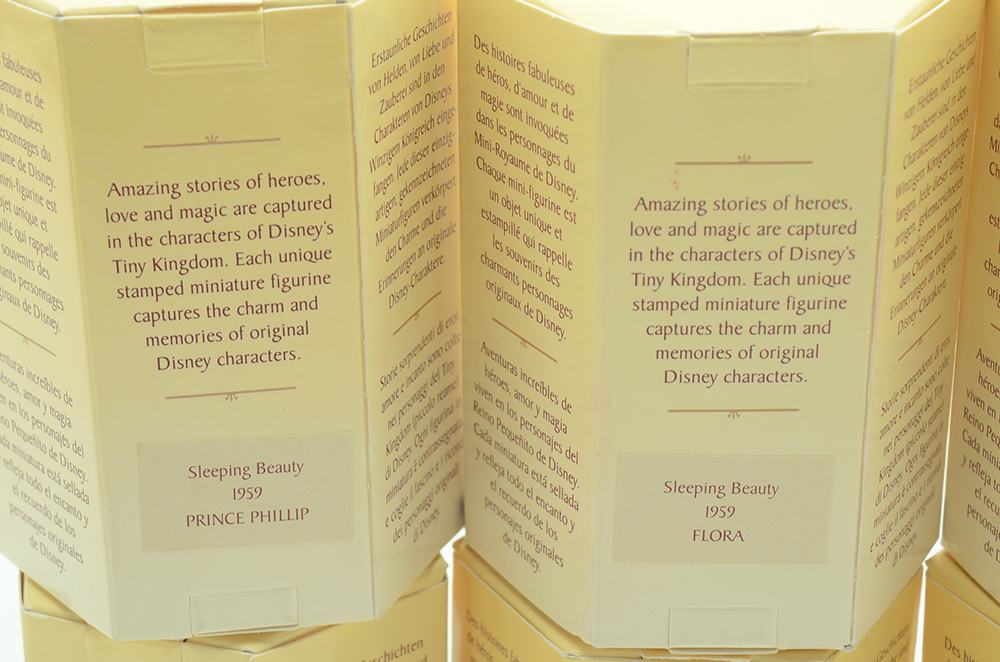 fabuleuses
amour et de
invoquées
du
de Disney.
mini-figurine est
unique et
qui rappelle
souvenirs des
personnages
de Disney.
increíbles de
amor y magia
en los personajes del
Pequeñito de Disney.
miniatura está sellada
refleja todo el encanto y
el recuerdo de los
personajes originales
de Disney.
Amazing stories of heroes,
love and magic are captured
in the characters of Disney's
Tiny Kingdom. Each unique
stamped miniature figurine
captures the charm and
memories of original
Disney characters.
Sleeping Beauty
1959
PRINCE PHILLIP
Erstaunliche Geschichten
von Helden, von Liebe und
Zauberei sind in den
Charakteren von Disneys
Winzigem Königreich einge-
fangen. Jede dieser einzig-
artigen, gekennzeichneten
Miniaturfiguren verkörpert
den Charme und die
Erinnerungen an originale
Disney-Charaktere.
Storie sorprendenti di eroi,
amore e incanto sono colte
nei personaggi del Tiny
Kingdom (piccolo reame)
di Disney. Ogni figurina in
miniatura è contrassegnata
e coglie il fascino e i ricordi
dei personaggi originali
di Disney.
Des histoires fabuleuses
de héros, d'amour et de
magie sont invoquées
dans les personnages du
Mini-Royaume de Disney.
Chaque mini-figurine est
un objet unique et
estampillé qui rappelle
les souvenirs des
charmants personnages
originaux de Disney.
Aventuras increíbles de
héroes, amor y magia
viven en los personajes del
Reino Pequeñito de Disney.
Cada miniatura está sellada
y refleja todo el encanto y
el recuerdo de los
personajes originales
de Disney.
Amazing stories of heroes,
love and magic are captured
in the characters of Disney's
Tiny Kingdom. Each unique
stamped miniature figurine
captures the charm and
memories of original
Disney characters.
Sleeping Beauty
1959
FLORA
Erstaunliche Geschichten
von Helden, von Liebe und
Zauberei sind in den
Charakteren von Disneys
Winzigem Königreich einge-
fangen. Jede dieser einzig-
artigen, gekennzeichneten
Miniaturfiguren verkörpert
den Charme und die
Erinnerungen an originale
Disney-Charaktere.
Storie sorprendenti di eroi,
amore e incanto sono colte
nei personaggi del Tiny
Kingdom (piccolo reame)
di Disney. Ogni figurina in
miniatura è contrassegnata
e coglie il fascino e i ricordi
dei personaggi originali
di Disney.
Geschichten
Des histoires